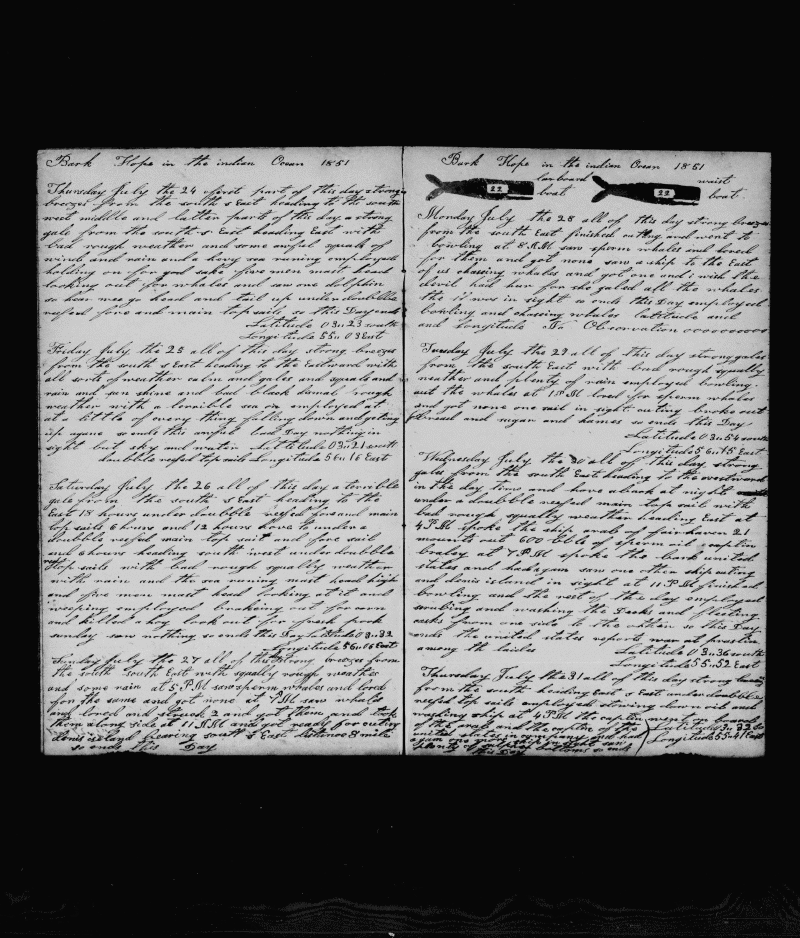 Bark Hope in the indian Ocean 1851
Thursday July the 24 first part of this day strong
breezes from the south s East heading to the south
west middle and latter parts of this day a strong
gale from the south s East heading East with
bad rough weather and some awful squals of
wind and rain and a hevy sea runing employed
holding on for god sake five men mast head
looking out for whales and saw one dolphin
so hear we go head and tail up under doubble
reefed fore and main top sails so this Day ends
Latitude 03n23 south
Longitude 55n03 East
Friday July the 25 all of this day strong breezes
from the south s East heading to the Eastward with
all sorts of weather calm and gales and squals and
rain and sun shine and bad black dismal rough
weather with a terrible sea on employed at
at a little of every thing falling down and geting
up agane so ends this awful bad Day nothing in
sight but sky and water Latitude 03n21 south
doubble reefed top sails Longitude 56n16 East
Saturday July the 26 all of this day a terrible
gale from the south s East heading to the
East 18 hours under doubble reefed fore and main
top sails 6 hours and 12 hours hove to under a
doubble reefed main top sail and fore sail
and 6 hours heading south west under doubble
reef top sails with bad rough squally weather
with rain and the sea runing mast head high
and five men mast head looking at it and
weeping employed brakeing out for corn
and killed a hog look out for fresh pork
sunday saw nothing so ends this Day Latitude 03n32
Longitude 56n06 East
Sunday July the 27 all of this day strong breezes from
the south south East with squally rough weather
and some rain at 5 PM saw sperm whales and lored
for the same and got none at 7 AM saw whales
and lored and struck 2 and got them and took
them along side at 11 AM and got ready for cuting
denis island bearing south s East distance 8 mile
so ends this Day
Bark Hope in the indian Ocean 1851
22 larboard
boat
22 waist
boat
Monday July the 28 all of this day strong breezes
from the south East finished cuting and went to
bowling at 8 AM saw sperm whales and lored
for them and got none saw a ship to the East
of us chasing whales and got one and i wish the
devil had hur for she galed all the whales
the is was in sight so ends this Day employed
bowling and chasing whales latitude and
and longitude No Observation oooooooooo
Tuesday July the 29 all of this day strong gales
from the south East with bad rough squally
weather and plenty of rain employed bowling
out the whales at 1 PM lored for sperm whales
and got none one sail in sight cuting broke out
bread and sugar and hames so ends this Day
Latitude 03n54 south
Longitude 56n15 East
Wednesday July the 30 all of this day strong
gales from the south East heading to the westward
in the day time and hove aback at night
under a doubble reefed main top sail with
bad rough squally weather heading East at
4 PM spoke the ship arab of fairhaven 21
mounts out 600 Bbls of sperm oil captin
braley at 7 PM spoke the bark united
states and had agam saw one other ship cuting
and denis island in sight at 11 PM finished
bowling and the rest of the day employed
scrubing and washing the Decks and fleeting
casks from one side to the other so this Day
ends the united states reports war at
among the ladies Latitude 03n36 south
Longitude 55n52 East
Thursday July the 31 all of this day strong breezes
from the south heading East s East under doubble
reefed top sails employed stowing down oil and
washing ship at 4 PM the captin went on board
of the arab and the captin of the
united states in company and had
agam one more ship in sight saw
plenty of so ends
this Day
Latitude 03n33 so
Longitude 55n41 East